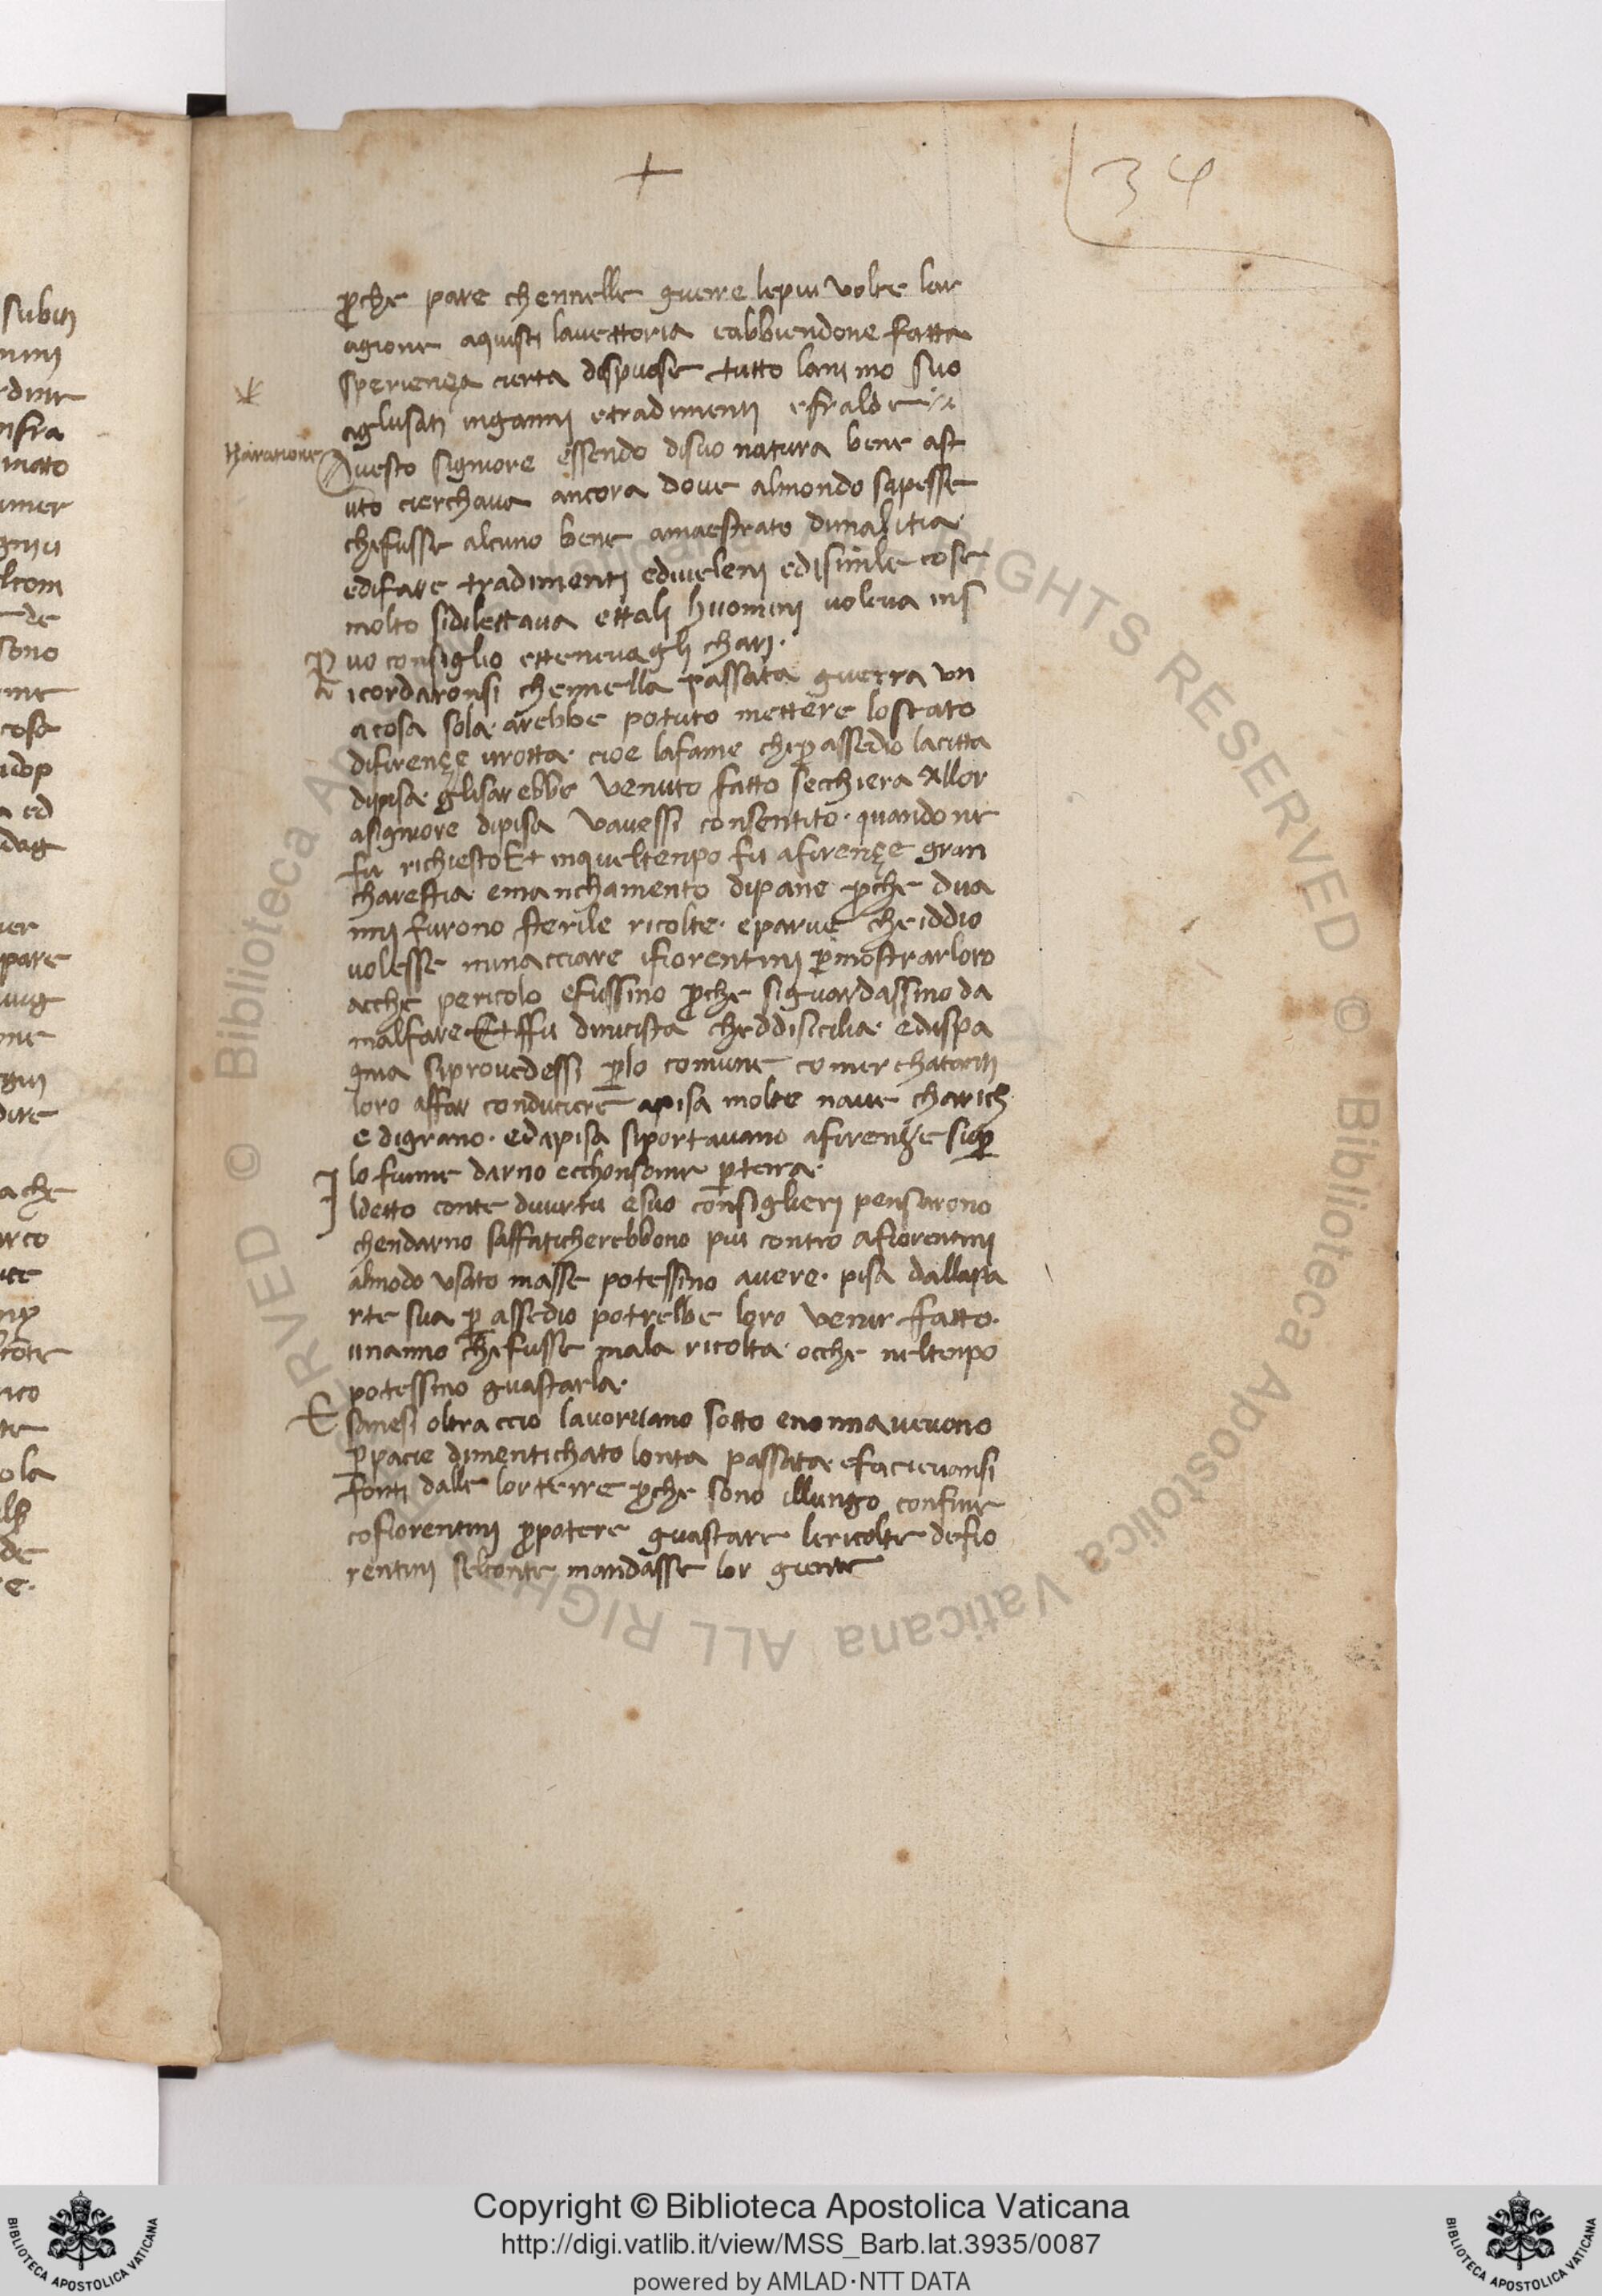 34
ꝑche pare chennelle guerre lepiu volte lar
agione aquisti lavettoria eabbiendone fatta
sperienza cierta dispuose tutto lanimo suo
aglusati inganni etradimenti efralde
Narratione
Questo signiore essendo disuo natura bene ast
uto cierchava ancora dove almondo sapesse
chefusse alcuno bene amaestrato dimalitia
edifare tradimenti ediveleni edisimile cose
molto sidilettava ettali huomini voleva ins
uo consiglio ettenevagli chari.
R icordaronsi chennella passata guerra un
acosa sola arebbe potuto mettere lostato
difirenze inrotta cioe lafame cheꝑ assedio lacitta
dipisa glisarebbe venuto fatto secchiera allor
asigniore dipisa vavessi consentito. quandone
fu richiesto Et inqueltenpo fu afirenze gran
charestia emanchamento dipane ꝑche dua
nni furono sterile ricolte. eparve cheiddio
volesse minacciare ifiorentini ꝑmostrarloro
acche pericolo efussino ꝑche siguardassino da
malfare. Et ffu dinicista cheddisicilia. edispa
gnia siprovedessi ꝑlo comune comerchatanti
loro affar conduciere apisa molte nave charich
e digrano. edapisa siportavano afirenze suꝑ
lo fiume darno ecchonsome ꝑterra.
I ldetto conte divirtu esuo consiglieri pensarono
chendarno saffaticherebbono piu contro afiorentini
almodo usato masse potessino avere. pisa dallapa
rte sua ꝑ assedio potrebbe loro venir ffatto.
unanno chefusse mala ricolta. ocche neltenpo
potessino guastarla.
E sanesi oltraccio lavoravano sotto enonnavevono
ꝑpacie dimentichato lonta passata. efacievansi
fonti dalle lorterre ꝑche sono illungo confine
cofiorentini ꝑpotere guastare lericolte defio
rentini selconte mandasse lor giente
Copyright © Biblioteca Apostolica Vaticana
http://digi.vatlib.it/view/MSS_Barb.lat.3935/0087
powered by AMLAD·NTT DATA
BIBLIOTECA APOSTOLICA VATICANA
BIBLIOTECA APOSTOLICA VATICANA